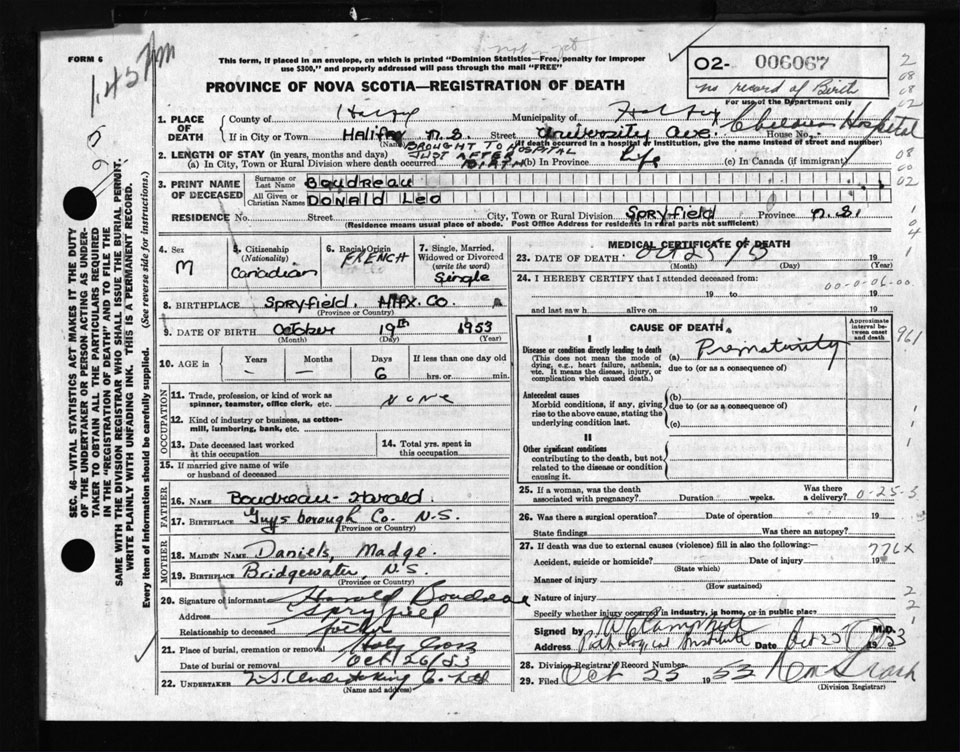 FORM 6
1.45 PM
This form, if placed in an envelope, on which is printed "Dominion Statistics—Free, penalty for improper
use $300," and properly addressed will pass through the mail "FREE"
PROVINCE OF NOVA SCOTIA—REGISTRATION OF DEATH
02- 006067
no record of Birth
For use of the Department only
1. PLACE OF DEATH
County of Halifax Municipality of Halifax
If in City or Town Halifax N.S. Street University Ave. House No. Childrens Hospital
(Name) (If death occurred in a hospital or institution, give the name instead of street and number)
2. LENGTH OF STAY (in years, months and days) BROUGHT TO HOSPITAL JUST AFTER BIRTH
(a) In City, Town or Rural Division where death occurred (b) In Province Life (c) In Canada (if immigrant)
3. PRINT NAME OF DECEASED
Surname or Last Name Boudreau
All Given or Christian Names DONALD Leo
RESIDENCE No. Street City, Town or Rural Division Spryfield Province N.S.
(Residence means usual place of abode. Post Office Address for residents in rural parts not sufficient)
4. Sex M
5. Citizenship (Nationality) Canadian
6. Racial Origin FRENCH
7. Single, Married, Widowed or Divorced (write the word) Single
8. BIRTHPLACE Spryfield. Hfx. Co.
(Province or Country)
9. DATE OF BIRTH October 19th 1953
(Month) (Day) (Year)
10. AGE in Years — Months — Days 6 If less than one day old hrs. or min.
OCCUPATION
11. Trade, profession, or kind of work as spinner, teamster, office clerk, etc. None
12. Kind of industry or business, as cotton-mill, lumbering, bank, etc.
13. Date deceased last worked at this occupation
14. Total yrs. spent in this occupation
15. If married give name of wife or husband of deceased
FATHER
16. NAME Boudreau- Harold.
17. BIRTHPLACE Guysborough Co. N.S.
(Province or Country)
MOTHER
18. MAIDEN NAME Daniels, Madge.
19. BIRTHPLACE Bridgewater, N.S.
(Province or Country)
20. Signature of informant Harold Boudreau
Address Spryfield
Relationship to deceased father
21. Place of burial, cremation or removal Holy Cross
Date of burial or removal Oct 26/53
22. UNDERTAKER N.S. Undertaking Co. Ltd
(Name and address)
MEDICAL CERTIFICATE OF DEATH
23. DATE OF DEATH Oct 25/53 19
(Month) (Day) (Year)
24. I HEREBY CERTIFY that I attended deceased from:
00-0-06-00
19 to 19
and last saw h alive on 19
CAUSE OF DEATH
Approximate interval between onset and death
I
Disease or condition directly leading to death (a) Prematurity
(This does not mean the mode of dying, e.g., heart failure, asthenia, etc. It means the disease, injury, or complication which caused death.)
due to (or as a consequence of)
Antecedent causes (b)
Morbid conditions, if any, giving rise to the above cause, stating the underlying condition last.
due to (or as a consequence of)
(c)
II
Other significant conditions
contributing to the death, but not related to the disease or condition causing it.
25. If a woman, was the death associated with pregnancy? Duration weeks. Was there a delivery? 0-25-3
26. Was there a surgical operation? Date of operation 19
State findings Was there an autopsy?
27. If death was due to external causes (violence) fill in also the following:—
776X
Accident, suicide or homicide? Date of injury 19
(State which)
Manner of injury
(How sustained)
Nature of injury
Specify whether injury occurred in industry, in home, or in public place
Signed by Campbell M.D.
Address Pathological Institute Date Oct 25 1953
28. Division Registrar's Record Number
29. Filed Oct 25 1953
(Division Registrar)
961
SEC. 46—VITAL STATISTICS ACT MAKES IT THE DUTY
OF THE UNDERTAKER OR PERSON ACTING AS UNDER-
TAKER TO OBTAIN ALL THE PARTICULARS REQUIRED
IN THE "REGISTRATION OF DEATH" AND TO FILE THE
SAME WITH THE DIVISION REGISTRAR WHO SHALL ISSUE THE BURIAL PERMIT.
WRITE PLAINLY WITH UNFADING INK. THIS IS A PERMANENT RECORD.
Every item of information should be carefully supplied. (See reverse side for instructions.)